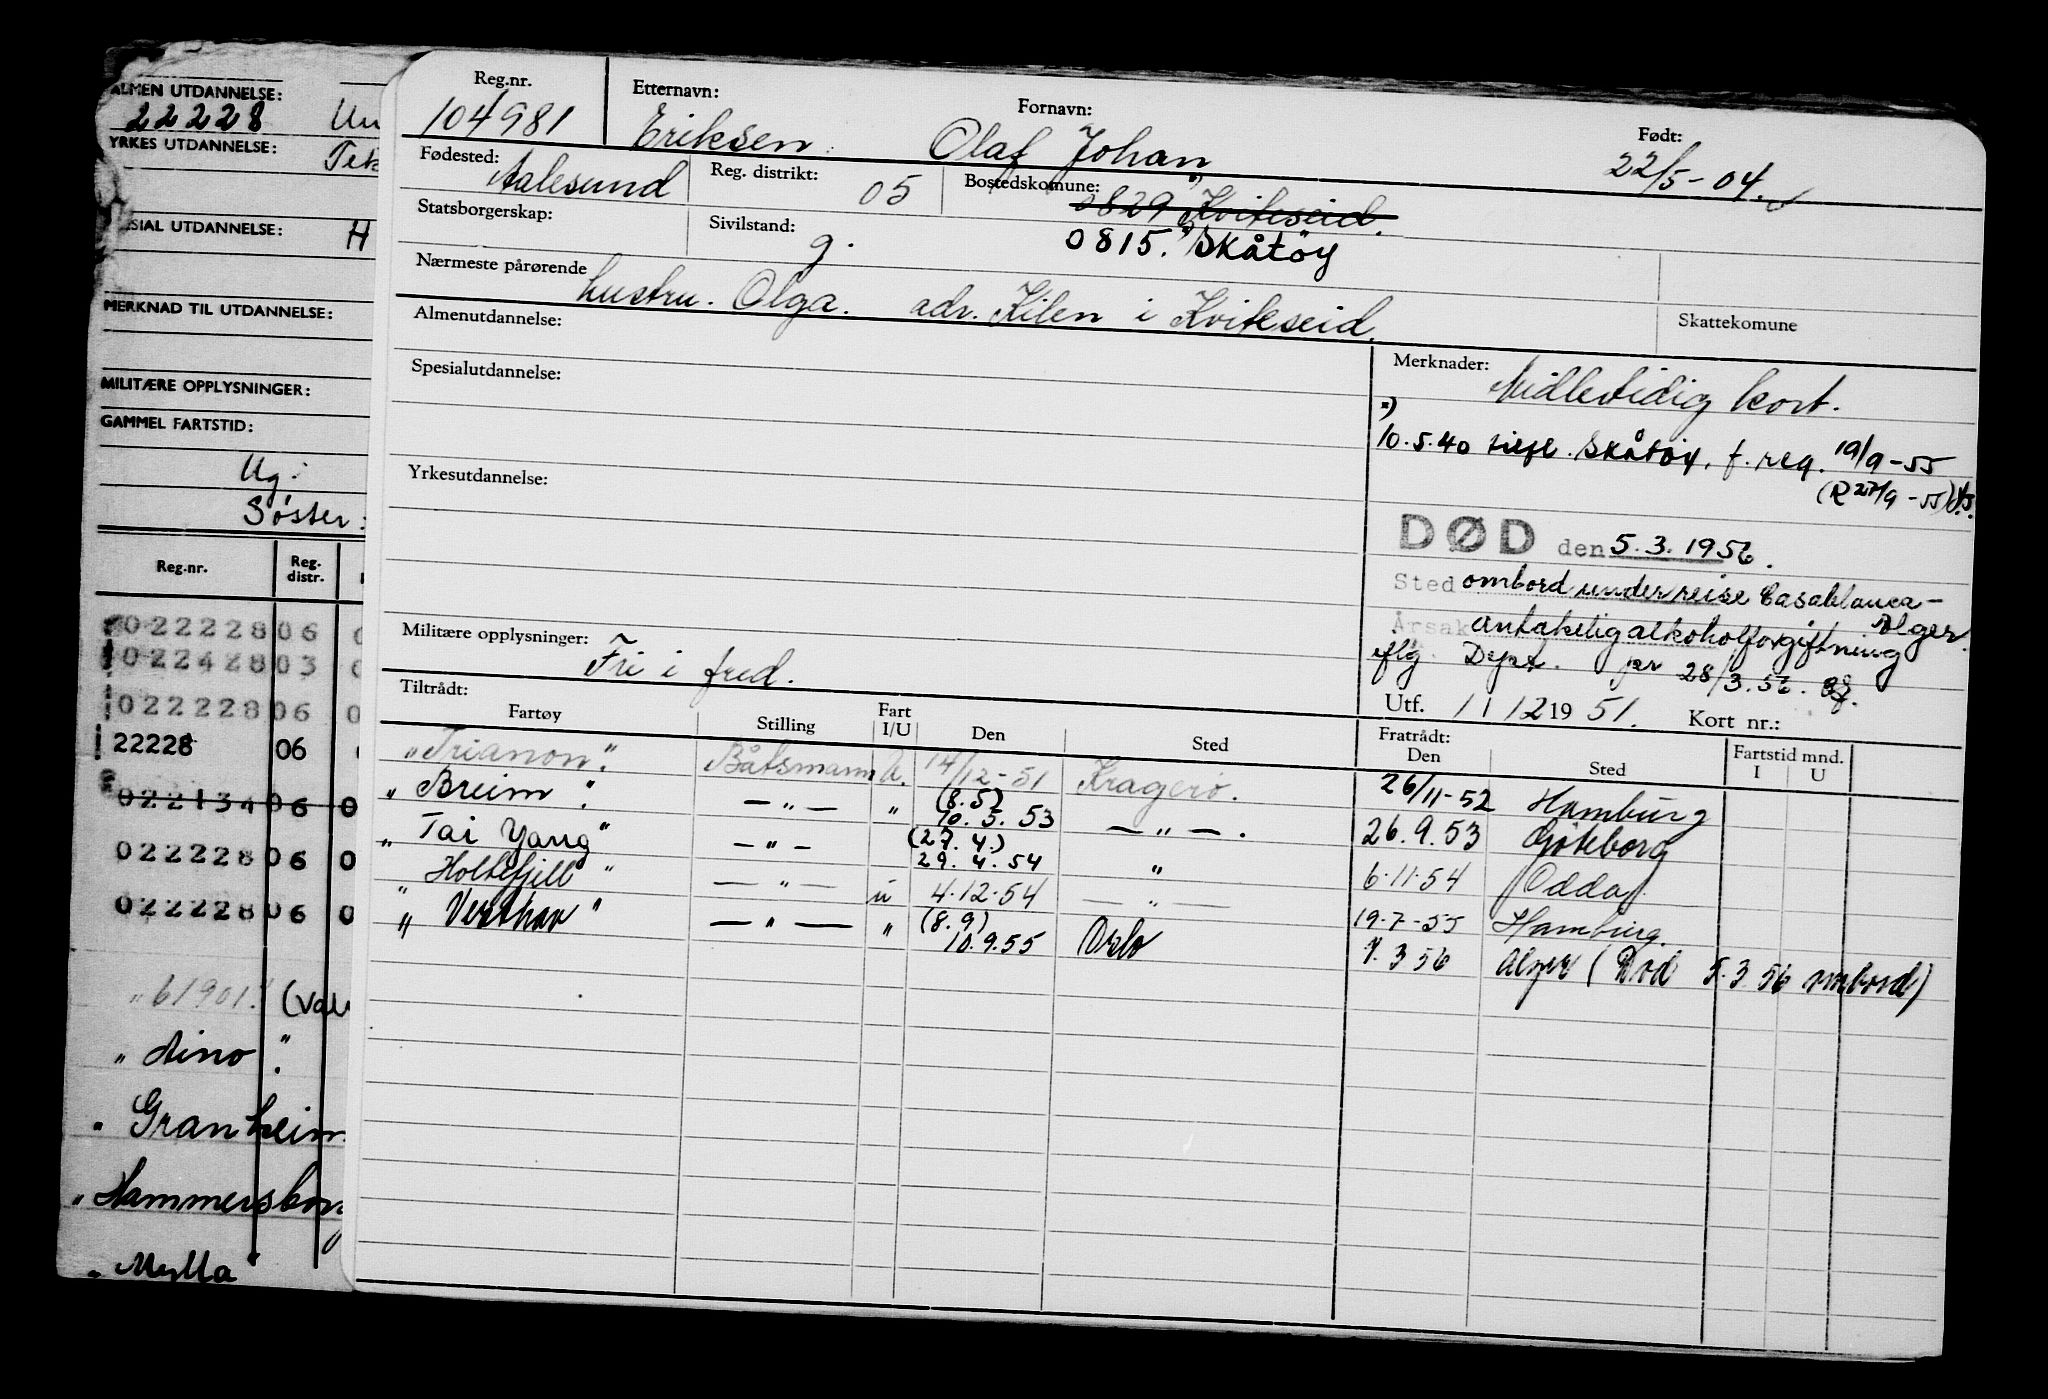 ALMEN UTDANNELSE:
22228 Un
YRKES UTDANNELSE: Tek
SIAL UTDANNELSE: H
MERKNAD TIL UTDANNELSE:
MILITÆRE OPPLYSNINGER:
GAMMEL FARTSTID:
Ug:
Søster:
Reg.nr. Reg. distr.
022228 06 0
022428 03 0
022228 06 0
22228 06
022134 06 0
022228 06 0
022228 06 0
"61901" (Val
"Aino".
"Granheim
"Hammersborg
"Mylla"
Reg.nr. Etternavn: Fornavn: Født:
104981 Eriksen Olaf Johan 22/5-04.
Fødested: Aalesund Reg. distrikt: 05 Bostedskomune: 0829 Kviteseid.
Statsborgerskap: Sivilstand: g. 0815. Skåtøy
Nærmeste pårørende hustru. Olga. adr. Kilen i Kviteseid.
Skattekomune
Almenutdannelse:
Merknader: Midlertidig kort.
Spesialutdannelse:
10.5.40 tilfl. Skåtøy, f. reg. 19/9-55
(R 27/9-55)
Yrkesutdannelse:
DØD den 5.3.1956.
Sted ombord under reise Casablanca-Alger.
Årsak antakelig alkoholforgiftning
iflg. Dept. pr 28/3.56.
Militære opplysninger: Fri i fred.
Utf. 11 12 19 51. Kort nr.:
Tiltrådt: Fratrådt: Fartstid mnd.
Fartøy Stilling Fart I/U Den Sted Den Sted I U
"Trianon". Båtsmann U. 14/12-51 Kragerø. 26/11-52 Hamburg
"Breim". —"— " (8.5) 10.5.53 —"—. 26.9.53 Göteborg
"Tai Yang" —"— (27.4.) 29.4.54 " 6.11.54 Odda
"Holtefjell" —"— u 4.12.54 —"— 19.7-55 Hamburg.
"Vesthav" —"— " (8.9) 10.9.55 Oslo 7.3 56 Alger (Død 5.3 56 ombord)